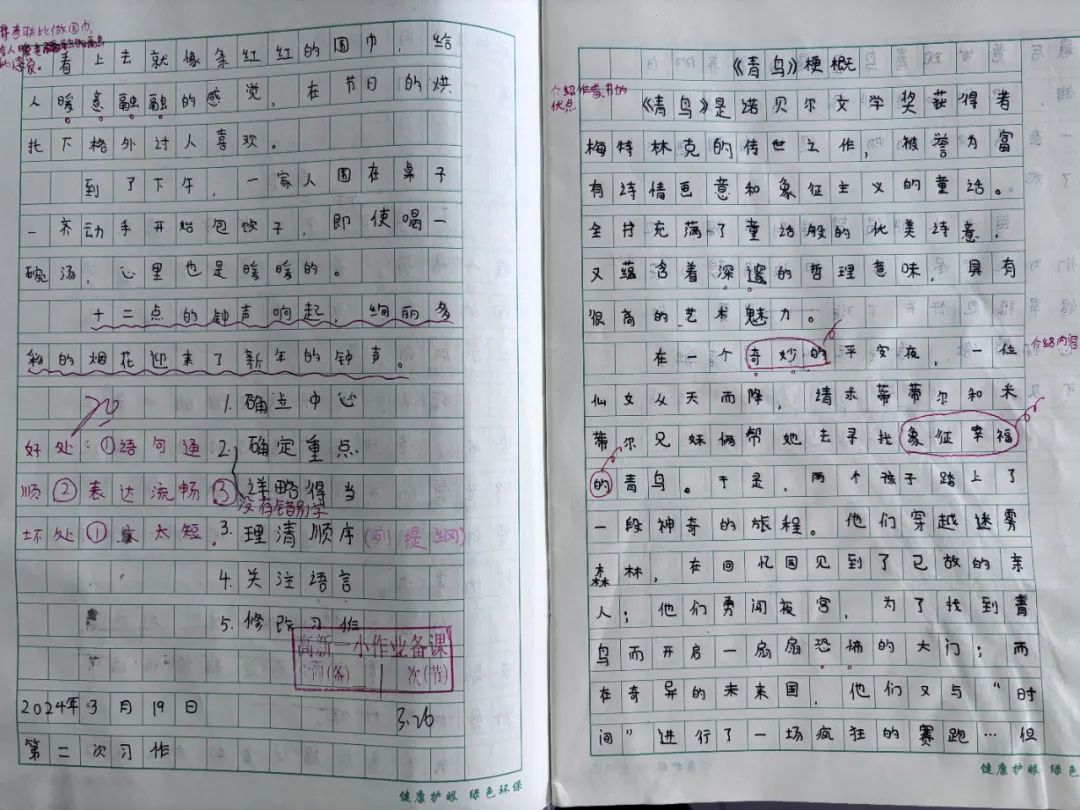 将春联比做围巾,
看上去就像条红红的围巾,给
人暖意融融的感觉,在节日的烘
托下格外讨人喜欢。
到了下午,一家人围在桌子
一齐动手开始包饺子,即使喝一
碗汤,心里也是暖暖的。
十二点的钟声响起,绚丽多
彩的烟花迎来了新年的钟声。
1.确点中心
好处:①语句通 2.确定重点
顺②表达流畅③详略得当
没有错别字
坏处① 太短.3.理清顺序(列提纲)
4.关注语言
5.修改习作
高新一小作业备课
(条) 1 次(节)
2024年3月19日
3.26
第二次习作
健康护眼 绿色环保
《青鸟》梗概
介绍作者、书的
优点
《青鸟》是诺贝尔文学奖获得者
梅特林克的传世之作,被誉为富
有诗情画意和象征主义的童话。
全书充满了童话般的优美诗意,
又蕴含着深邃的哲理意味,具有
很高的艺术魅力。
在一个奇妙的平安夜,一位
介绍内容
仙女从天而降,请求蒂蒂尔和米
蒂尔兄妹俩帮她去寻找象征幸福
的青鸟。于是,两个孩子踏上了
一段神奇的旅程。他们穿越迷雾
森林,在回忆国见到了已故的亲
人;他们勇闯夜宫,为了找到青
鸟而开启一扇扇恐怖的大门;而
在奇异的未来国,他们又与“时
间”进行了一场疯狂的赛跑…但
健康护眼 绿色